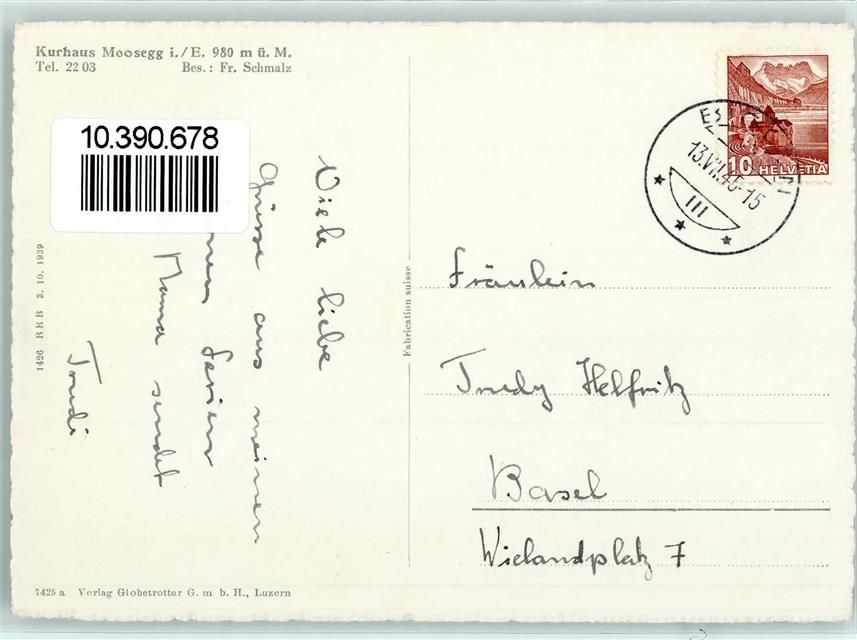 Kurhaus Moosegg i./E. 980 m ü. M.
Tel. 22 03 Bes.: Fr. Schmalz
10.390.678
Viele liebe
Grüsse aus meinen
Ferien
Mama sendet
Trudi
1426 BRB 3. 10. 1939
Fabrication suisse
7425 a Verlag Globetrotter G. m b. H., Luzern
10 HELVETIA
13.VII.45-15
III
Fräulein
Trudy Helfritz
Basel
Wielandplatz 7